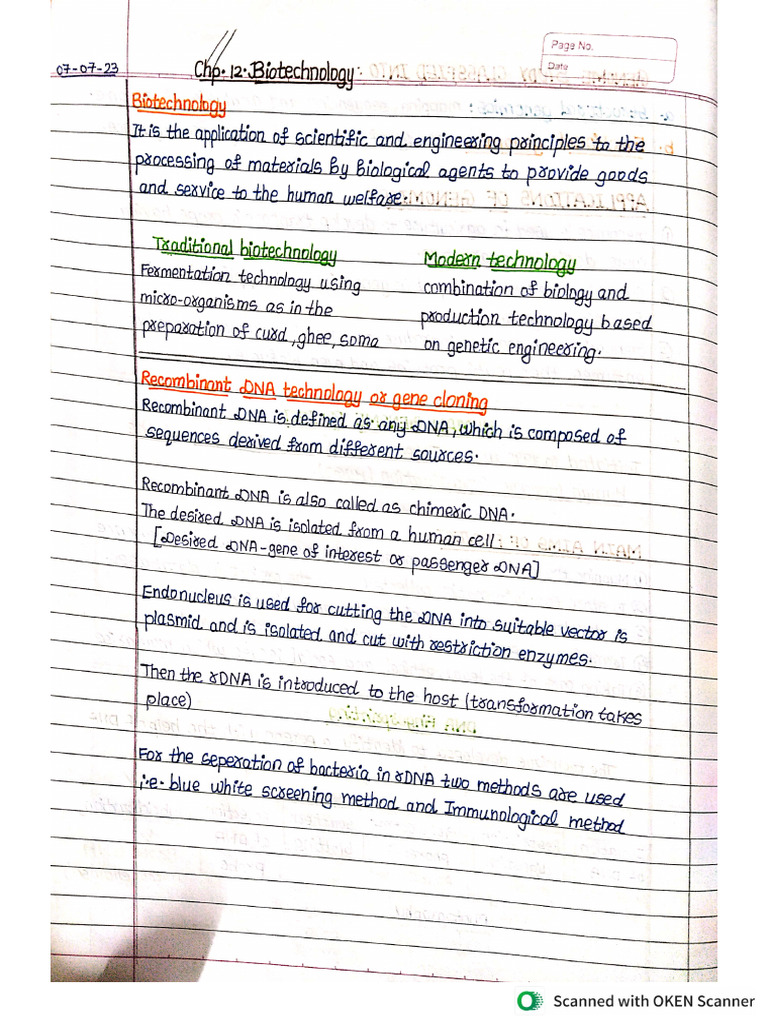 Page No.
Date
07-07-23
Chp. 12. Biotechnology
Biotechnology
It is the application of scientific and engineering principles to the
processing of materials by biological agents to provide goods
and service to the human welfare.
Traditional biotechnology
Fermentation technology using
micro-organisms as in the
preparation of curd, ghee, soma
Modern technology
combination of biology and
production technology based
on genetic engineering.
Recombinant DNA technology or gene cloning
Recombinant DNA is defined as any DNA, which is composed of
sequences derived from different sources.
Recombinant DNA is also called as chimeric DNA.
The desired DNA is isolated from a human cell:
[Desired DNA-gene of interest or passenger DNA]
Endonucleus is used for cutting the DNA into suitable vector is
plasmid and is isolated and cut with restriction enzymes.
Then the rDNA is introduced to the host (transformation takes
place)
For the seperation of bacteria in rDNA two methods are used
i.e. blue white screening method and Immunological method
Scanned with OKEN Scanner